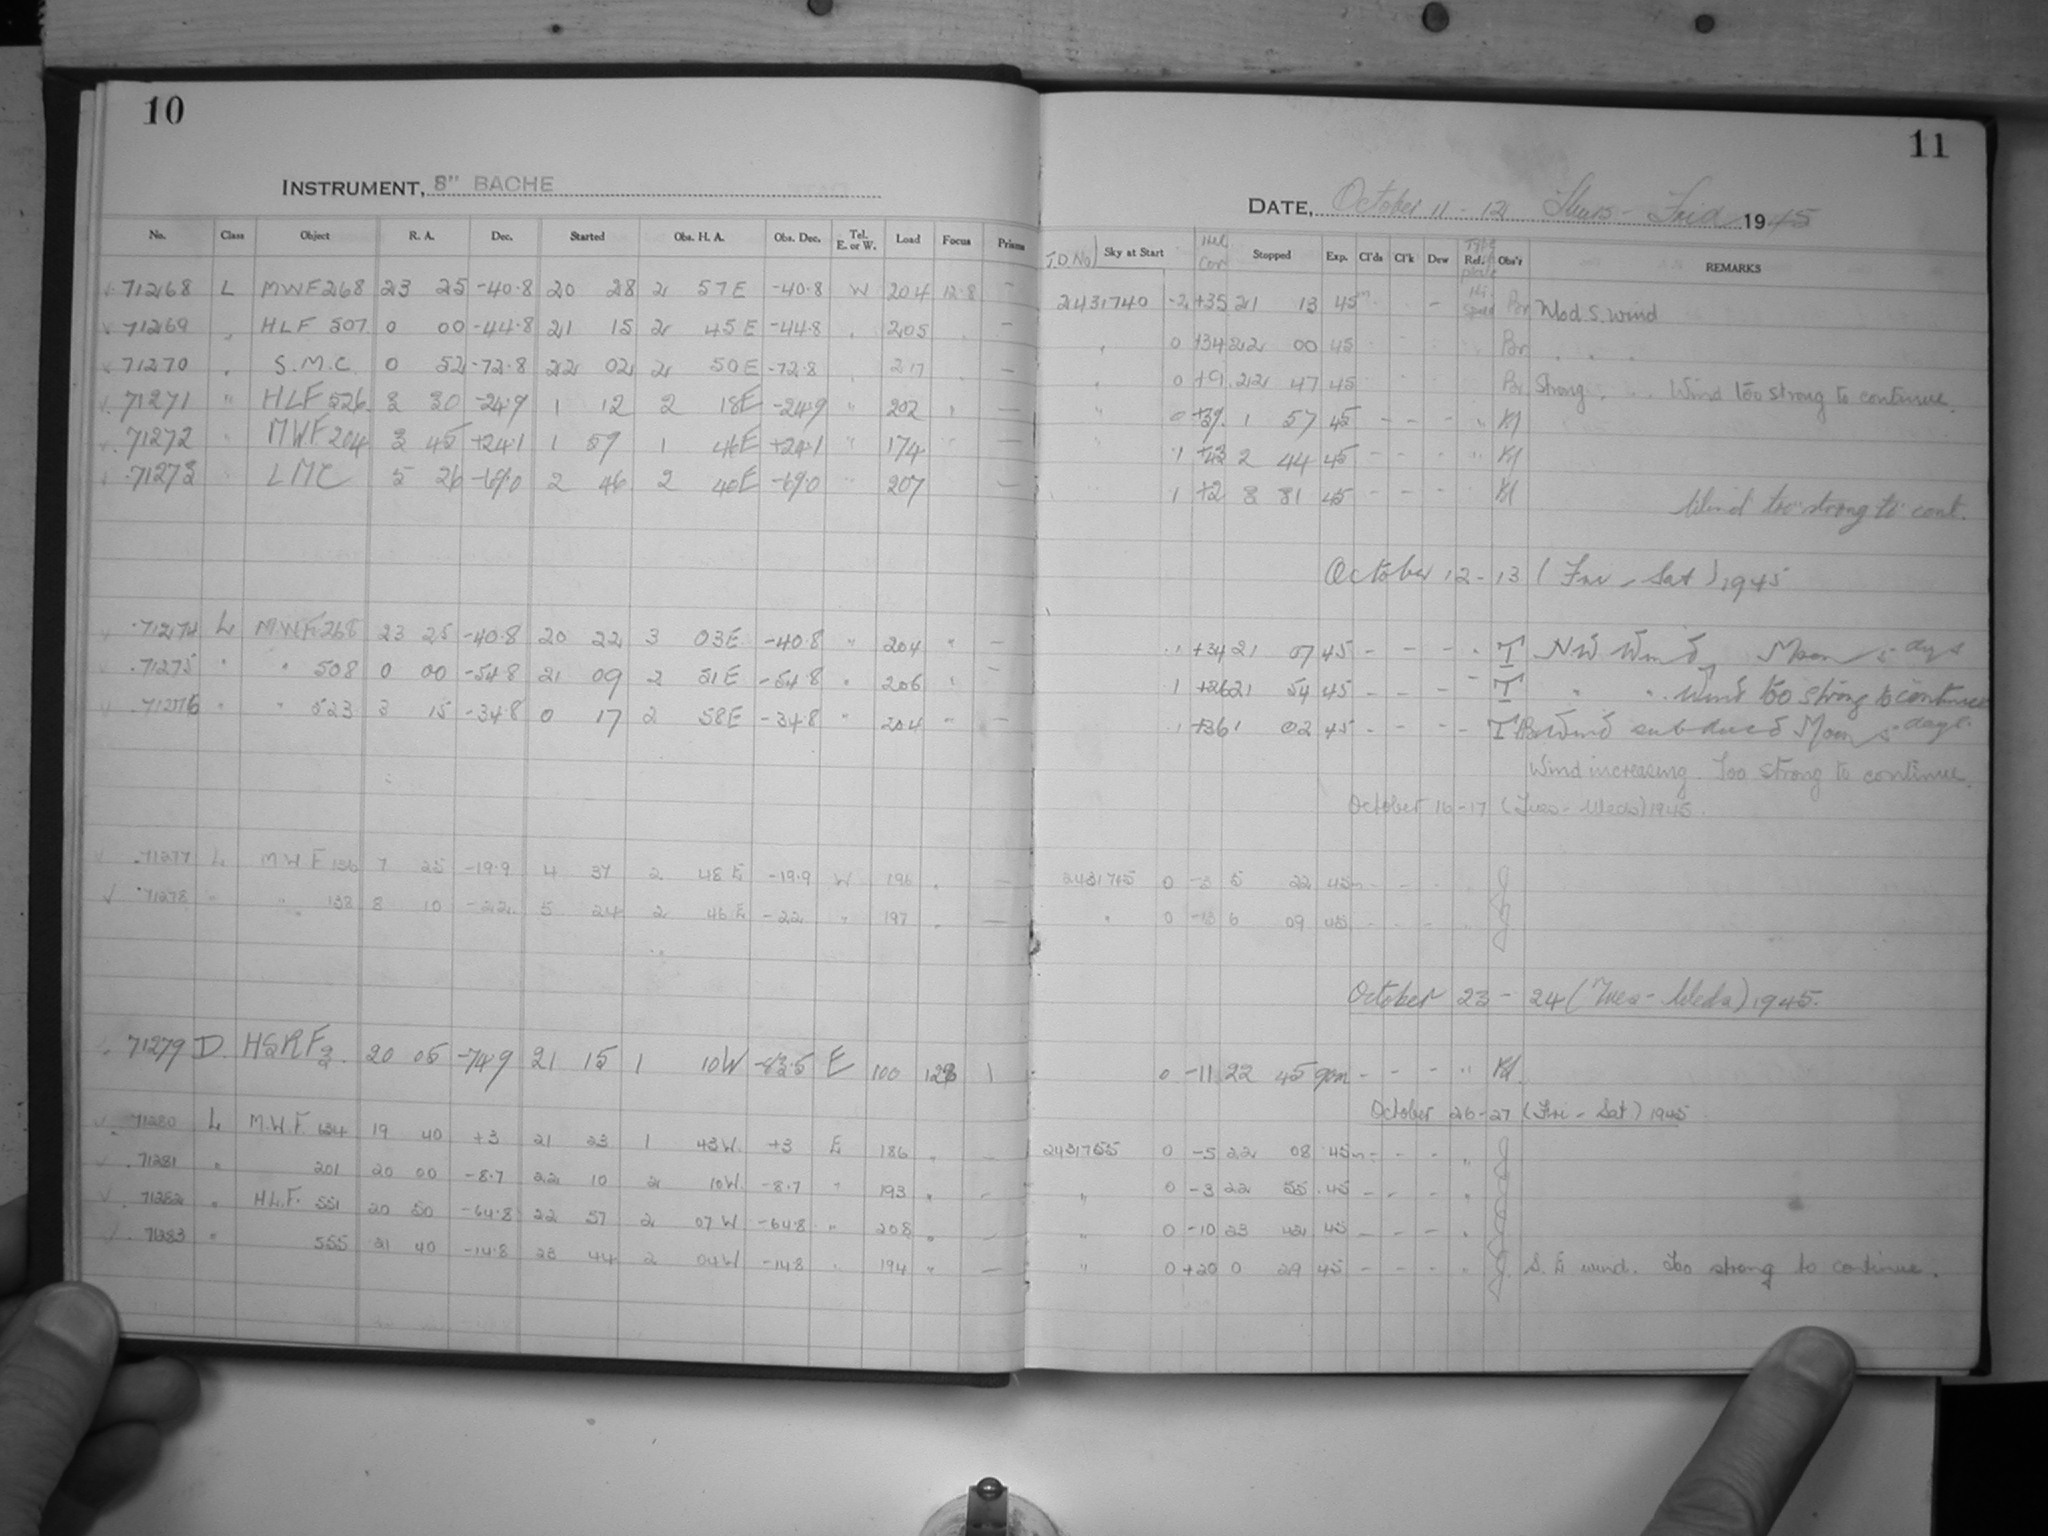 10
INSTRUMENT, 8" BACHE
No. Class Object R. A. Dec. Started Obs. H. A. Obs. Dec. Tel. E. or W. Load Focus Prisms
71268 L MWF268 23 25 -40.8 20 28 2 57E -40.8 W 204 12.8 —
71269 " HLF 507 0 00 -44.8 21 15 2 45E -44.8 " 205 —
71270 " S.M.C. 0 52 -72.8 22 02 2 50E -72.8 " 217 " —
71271 " HLF 526 3 30 -24.9 1 12 2 18E -24.9 " 202 " —
71272 " MWF204 3 45 +24.1 1 59 1 46E +24.1 " 174 " —
71273 " LMC 5 26 -69.0 2 46 2 40E -69.0 " 207 —
71274 L MWF268 23 25 -40.8 20 22 3 03E -40.8 " 204 " —
71275 " " 508 0 00 -54.8 21 09 2 51E -54.8 " 206 " —
71276 " " 523 3 15 -34.8 0 17 2 58E -34.8 " 204 " —
71277 L MWF 7 25 -19.9 4 37 2 48E -19.9 W 196 " —
71278 " " 8 10 -22 5 24 2 46E -22 " 197 " —
71279 D HSRF3 20 05 -74.9 21 15 1 10W E 100 1
71280 L M.W.F. 134 19 40 +3 21 23 1 43W +3 E 186 " —
71281 " 201 20 00 -8.7 22 10 2 10W -8.7 " 193 " —
71282 " H.L.F. 551 20 50 -64.8 22 57 2 07W -64.8 " 208 " —
71283 " 555 21 40 -14.8 23 44 2 04W -14.8 " 194 " —
11
DATE, October 11 - 12 Thurs - Frid 1945
J.D. No Sky at Start Hel Corr Stopped Exp. Cl'ds Cl'k Dew Type Ref. plate Obs'r REMARKS
2431740 -2 +35 21 13 45m — Br Mod. S. wind
" 0 +34 22 00 45 Br " " "
" 0 +9 22 47 45 Br Strong " " Wind too strong to continue.
" 0 +39 1 57 45 - - - " Kl
" 1 2 44 45 - - - " Kl
1 +2 3 31 45 - - - " Kl
Wind too strong to cont.
October 12 - 13 (Fri - Sat) 1945
1 +34 21 07 45 - - - " T NW Wind, Moon 5 days
1 +26 21 54 45 - - - T " " Wind too strong to continue
1 +36 1 02 45 - - - T Br Wind subdued Moon 5 days.
Wind increasing. Too strong to continue.
October 16-17 (Tues - Weds) 1945.
2431745 0 -3 5 22 45m - -
" 0 6 09 45 - - -
October 23 - 24 (Tues - Weds) 1945.
0 -11 22 45 90m - - - " Kl.
October 26-27 (Fri - Sat) 1945
2431755 0 -5 22 08 45m - - - "
" 0 -3 22 55 45 - - - "
" 0 -10 23 42 45 - - - "
" 0 +20 0 29 45 - - - " S. E wind. Too strong to continue.